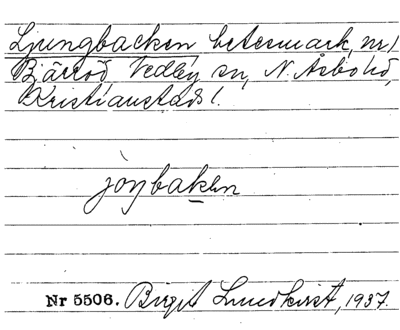 Ljungbacken betesmark, nr 1
Bjärröd, Vedby sn, N. Åsbo hd,
Kristianstads l.
joŋbakən
Nr 5506. Birgit Lundkvist, 1937.